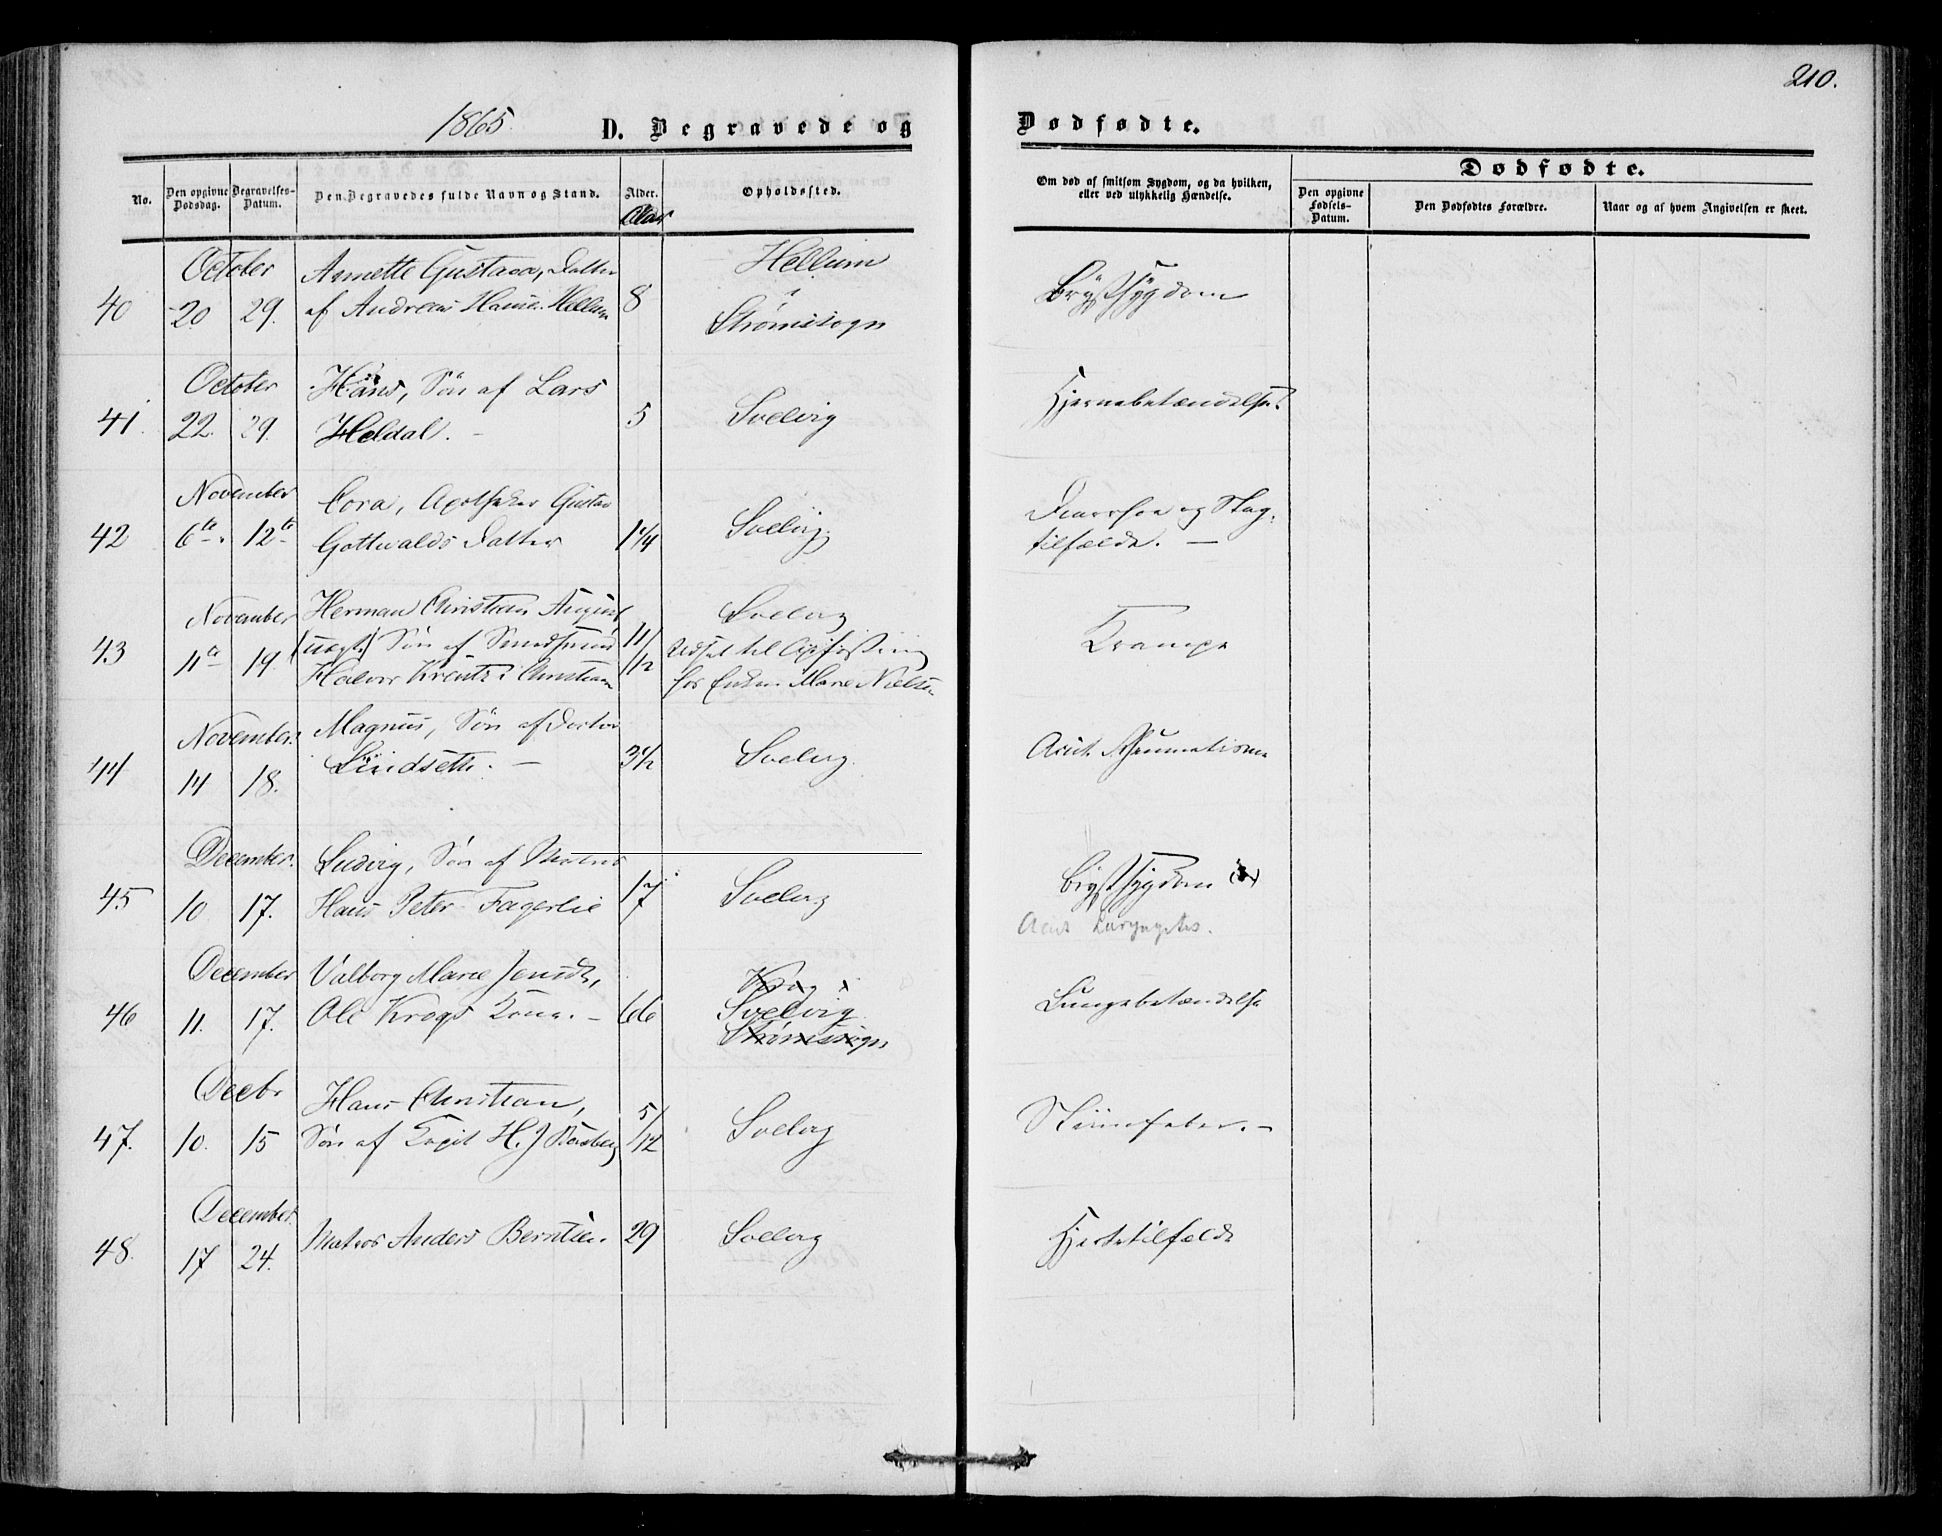 210.
1865. D. Begravede og Dødfødte.
No.
Den opgivne Dødsdag.
Begravelses-Datum.
Den Begravedes fulde Navn og Stand.
Alder.
Aar
Opholdssted.
Om død af smitsom Sygdom, og da hvilken,
eller ved ulykkelig Hændelse.
Dødfødte.
Den opgivne Fødsels-Datum.
Den Dødfødtes Forældre.
Naar og af hvem Angivelsen er skeet.
October Annette Gustava, Datter Hellum
40 20 29. af Andreas Hansen Hellum 8 i Brystsygdom
Strømsogn
October Hans, Søn af Lars
41. 22. 29. Heldal. – 5 Svelvig Hjernebetændelse.
November Cora, Apotheker Gustav Diarrhoe og Slag-
42 6te 12te Gottwalds Datter 1 1/4 Svelvig tilfælde. –
November Herman Christian August Svelvig
43 11te 19. (uægt.) Søn af 11/12 Udsat til Opfostring Krampe
Halvor i Christiania hos Enken Marie Nielsen
November. Magnus, Søn af Doctor
44 14 18. Lindseth. – 3 1/2 Svelvig. Acut Rheumatisme
December. Ludvig, Søn af Matros
45 10 17. Hans Peter Fagerlie 17 Svelvig Brystsygdom
Acut Laryngetis.
December Valborg Marie Jensdr, Krog i
46 11. 17. Ole Krogs Kone. – 66 Svelvig Lungebetændelse
Strømsogn
Decbr Hans Christian,
47. 10. 15 Søn af Capit H. J 5/12 Svelvig Sliimfeber. –
December
48. 17 24. Matros Anders Berntsen 29 Svelvig Hjertetilfælde